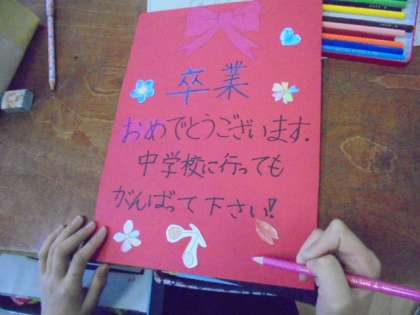 卒業
おめでとうございます.
中学校に行っても
がんばって下さい!!